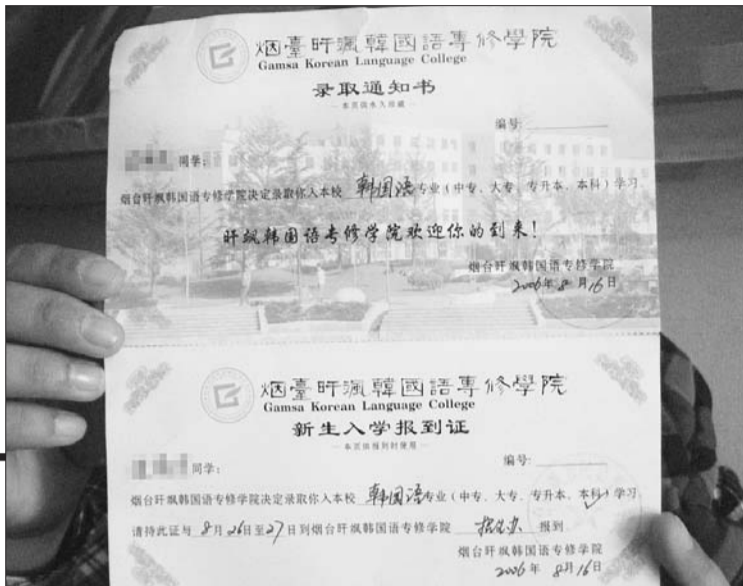 烟臺旰飒韓國語專修學院
Gamsa Korean Language College
录取通知书
—本页供永久珍藏—
编号:
同学:
烟台旰飒韩国语专修学院决定录取你入本校 韩国语 专业(中专、大专、专升本、本科)学习
旰飒韩国语专修学院欢迎你的到来!
烟台旰飒韩国语专修学院
2006年8月16日
烟臺旰飒韓國語專修學院
Gamsa Korean Language College
新生入学报到证
—本页供报到时使用—
编号:
同学:
烟台旰飒韩国语专修学院决定录取你入本校 韩国语 专业(中专、大专、专升本、本科)学习
请持此证与 8月26日至27日到烟台旰飒韩国语专修学院 招生办 报到
烟台旰飒韩国语专修学院
2006年 8月16日